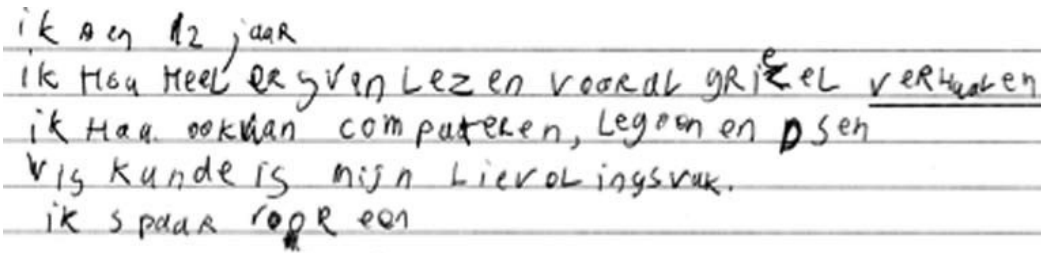 ik Ben 12 jaar
ik Hou Heel ERg van Lezen vooRaL gRiezeL veRHaaLen
ik Hou ook van computeRen, Legoon en DSen
wiskunde is mijn LievoLingsvak.
ik spaaR vooR een